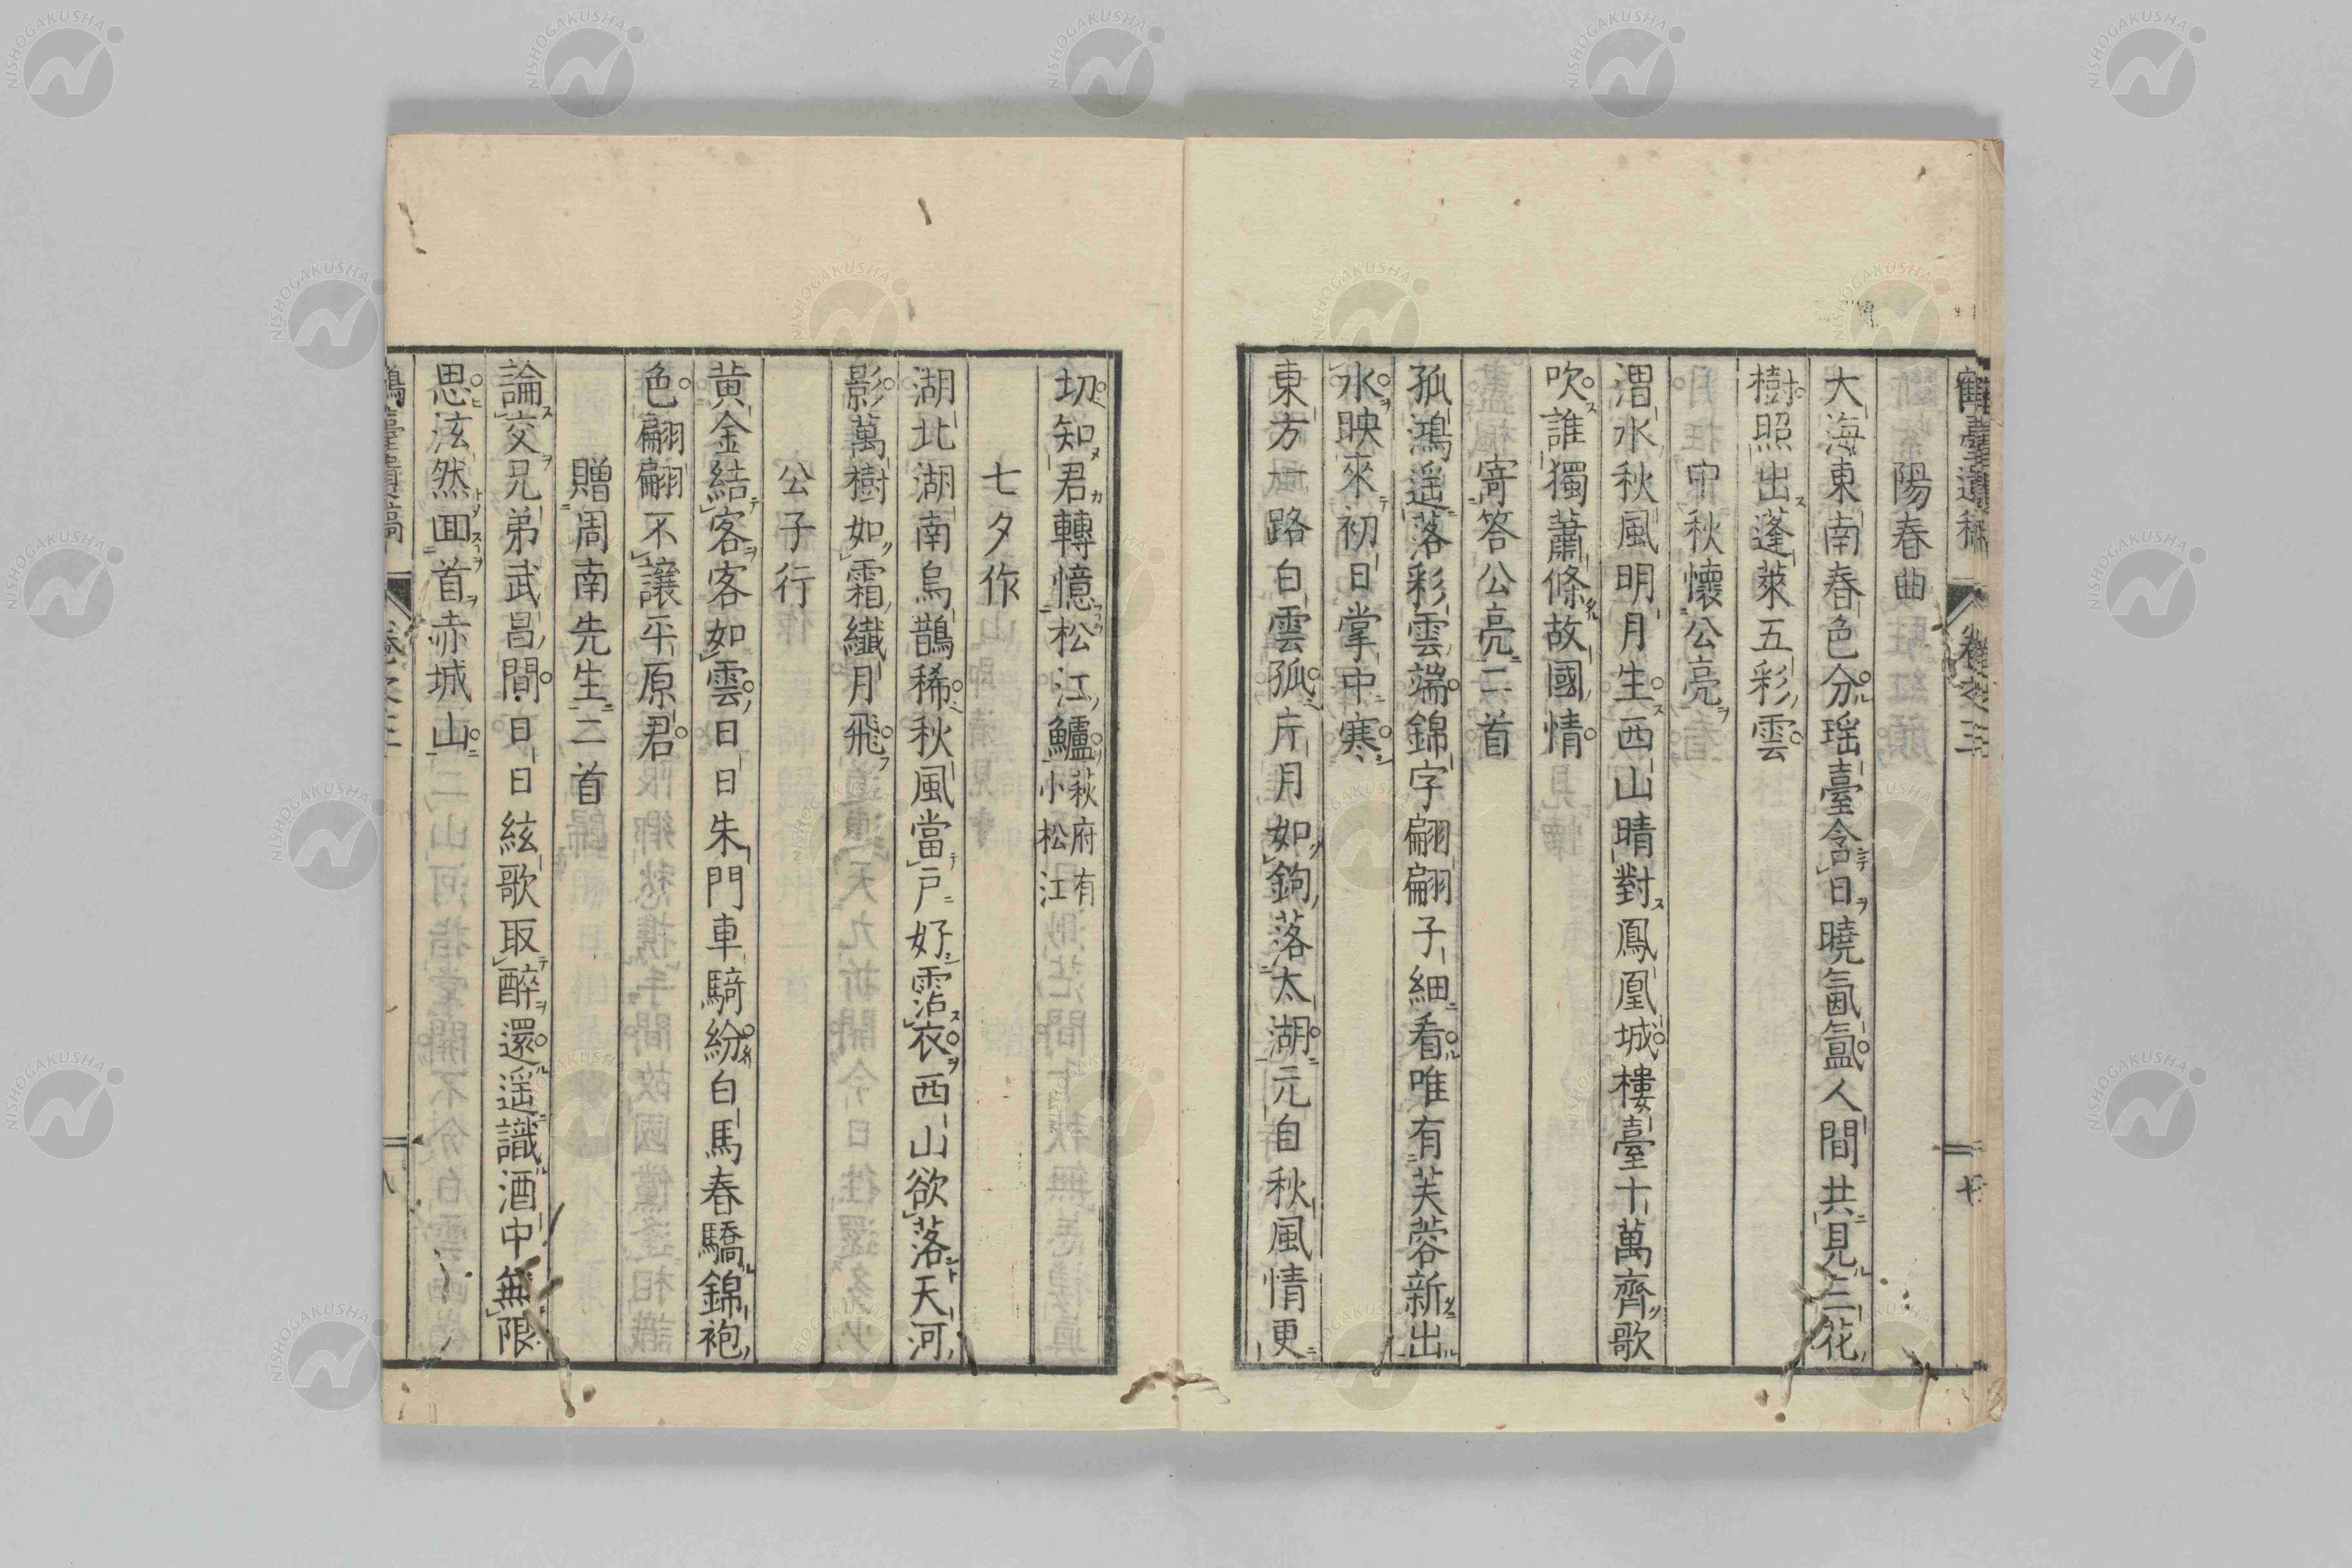 鶴臺遺稿 卷之三 十七
陽春曲
大海東南春色分瑶臺含日曉氤氳人間共見三花
樹照出蓬萊五彩雲
中秋懷公亮
渭水秋風明月生西山晴對鳳凰城樓臺十萬齊歌
吹誰獨蕭條故國情
寄答公亮二首
孤鴻遥落彩雲端錦字翩翩子細看唯有芙蓉新出
水映來初日掌中寒
東方風路白雲孤片月如鉤落太湖元自秋風情更
切知君轉憶松江鱸萩府有小松江
七夕作
湖北湖南烏鵲稀秋風當戸好霑衣西山欲落天河
影萬樹如霜纖月飛
公子行
黄金結客客如雲日日朱門車騎紛白馬春驕錦袍
色翩翩不讓平原君
贈周南先生二首
論交兄弟武昌間日日絃歌取醉還遥識酒中無限
思泫然囬首赤城山
鶴臺遺稿 卷之三
NISHOGAKUSHA